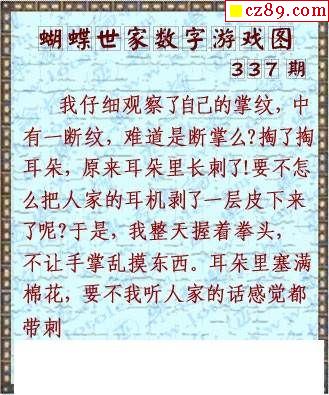 cz89.com
蝴蝶世家数字游戏图
337期
我仔细观察了自己的掌纹，中
有一断纹，难道是断掌么?掏了掏
耳朵，原来耳朵里长刺了!要不怎
么把人家的耳机剥了一层皮下来
了呢?于是，我整天握着拳头，
不让手掌乱摸东西。耳朵里塞满
棉花，要不我听人家的话感觉都
带刺